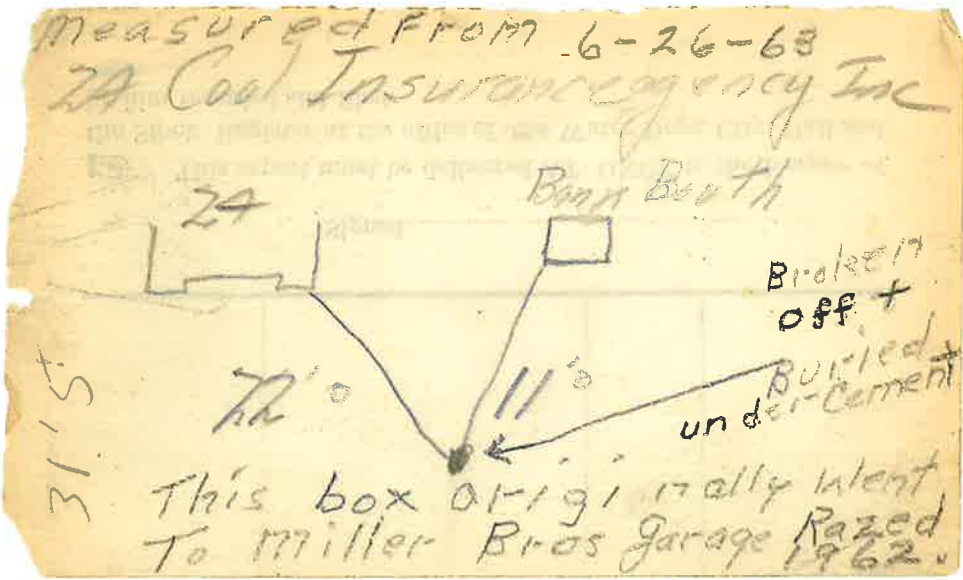 Measured From 6-26-63
24 Coal Insurance agency Inc
24
Bank Booth
Broken
off +
Buried +
under Cement
22'0
11'0
31 St
This box originally went
To Miller Bros garage Razed
1962.